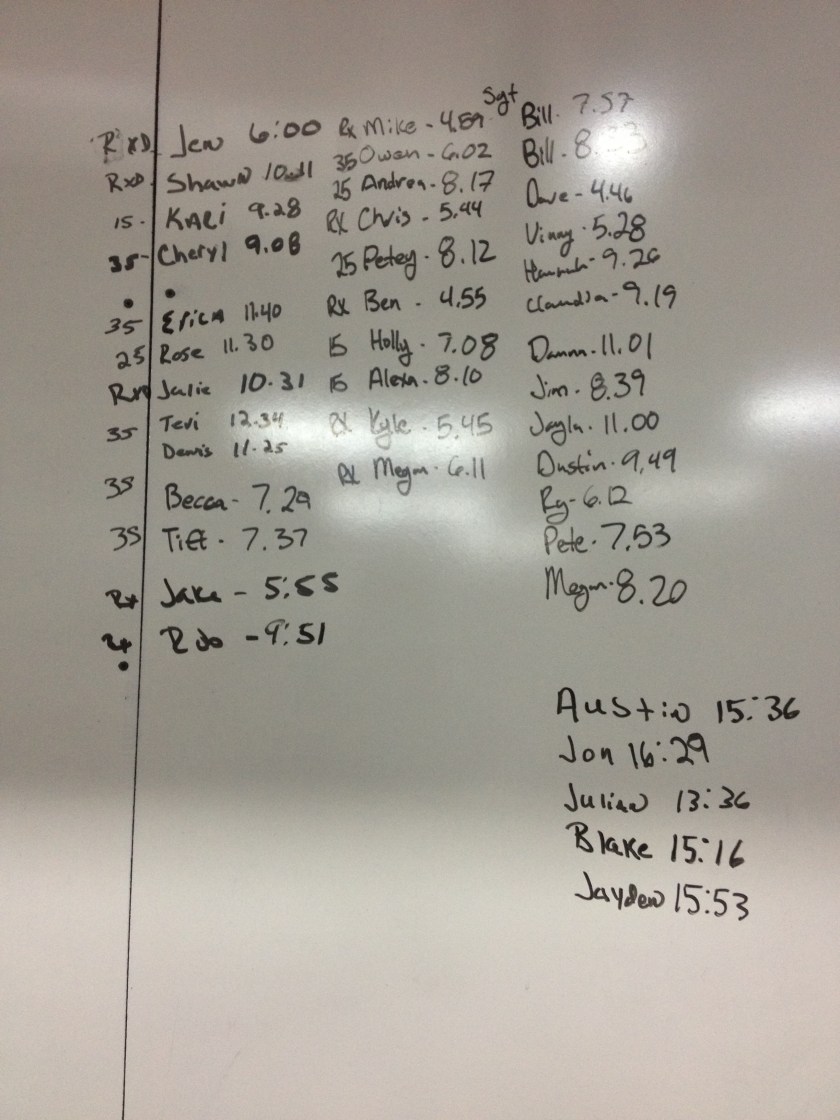 RXD Jen 6:00
RXD Shawn 10.11
15 - KAri 9.28
35 - Cheryl 9.08
35 Erica 11.40
25 Rose 11.30
RXD Julie 10.31
35 Teri 12.34
Denis 11.25
35 Becca - 7.29
35 Tiff - 7.37
Rx Jake - 5:55
Rx Rob - 9:51
Rx Mike - 4.59
35 Owen - 6.02
25 Andrea - 8.17
RX Chris - 5.44
25 Petey - 8.12
Rx Ben - 4.55
15 Holly - 7.08
15 Alexa - 8.10
RX Kyle - 5.45
RX Megan - 6.11
Sgt Bill - 7.57
Bill - 8.
Dave - 4.46
Vinny - 5.28
Hannah - 9.26
Claudia - 9.19
11.01
Jim - 8.39
Jayla - 11.00
Dustin - 9,49
Ry - 6.12
Pete - 7.53
Megan - 8.20
Austin 15:36
Jon 16:29
Julian 13:36
Blake 15:16
Jayden 15:53